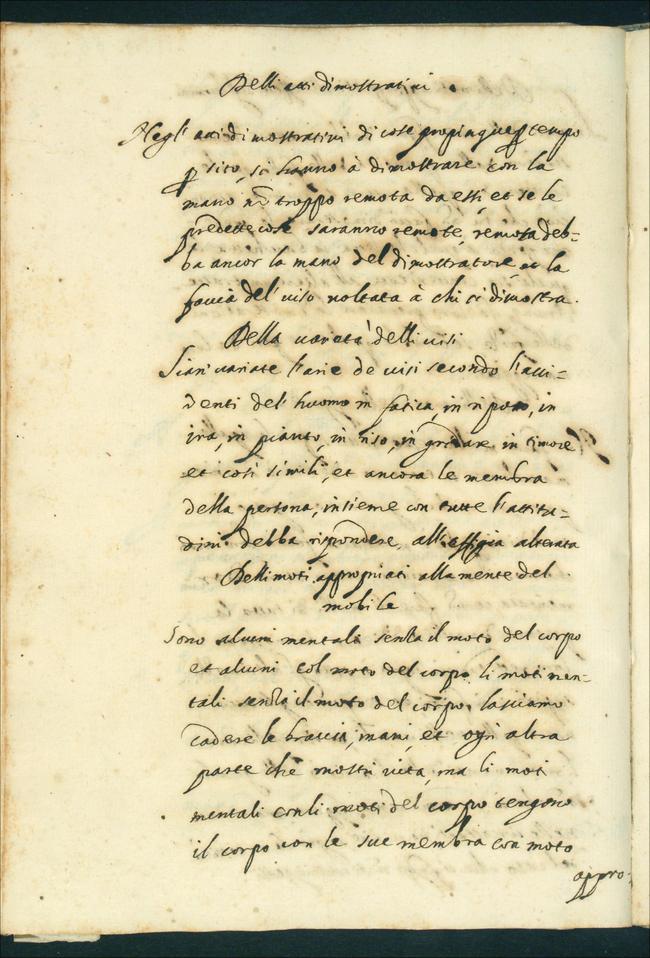 Delli atti dimostrativi.
Negl' atti dimostrativi di cose propinque p tempo
p sito, si hanno à dimostrare con la
mano nō troppo remota da essi, et se le
predette cose saranno remote, remota deb=
ba ancor la mano del dimostratore, et la
faccia del' viso voltata à chi si dimostra.
Della varietà delli visi
Sian' variate l'arie de visi secondo l'acci=
denti del' huomo in fatica, in riposo, in
ira, in pianto, in riso, in gridare in timore
et cosi simili, et ancora le membra
della persona, insieme con tutte l'attitu=
dini debba rispondere, all'effigia alterata
Delli moti appropriati alla mente del
mobile
Sono alcuni mentali senza il moto del corpo
et alcuni col moto del corpo. li moti men=
tali senza il moto del corpo. lasciano
cadere le braccia, mani, et ogn altra
parte che mostri vita, ma li moti
mentali con li moti del corpo tengono
il corpo con le sue membra con moto
appro=